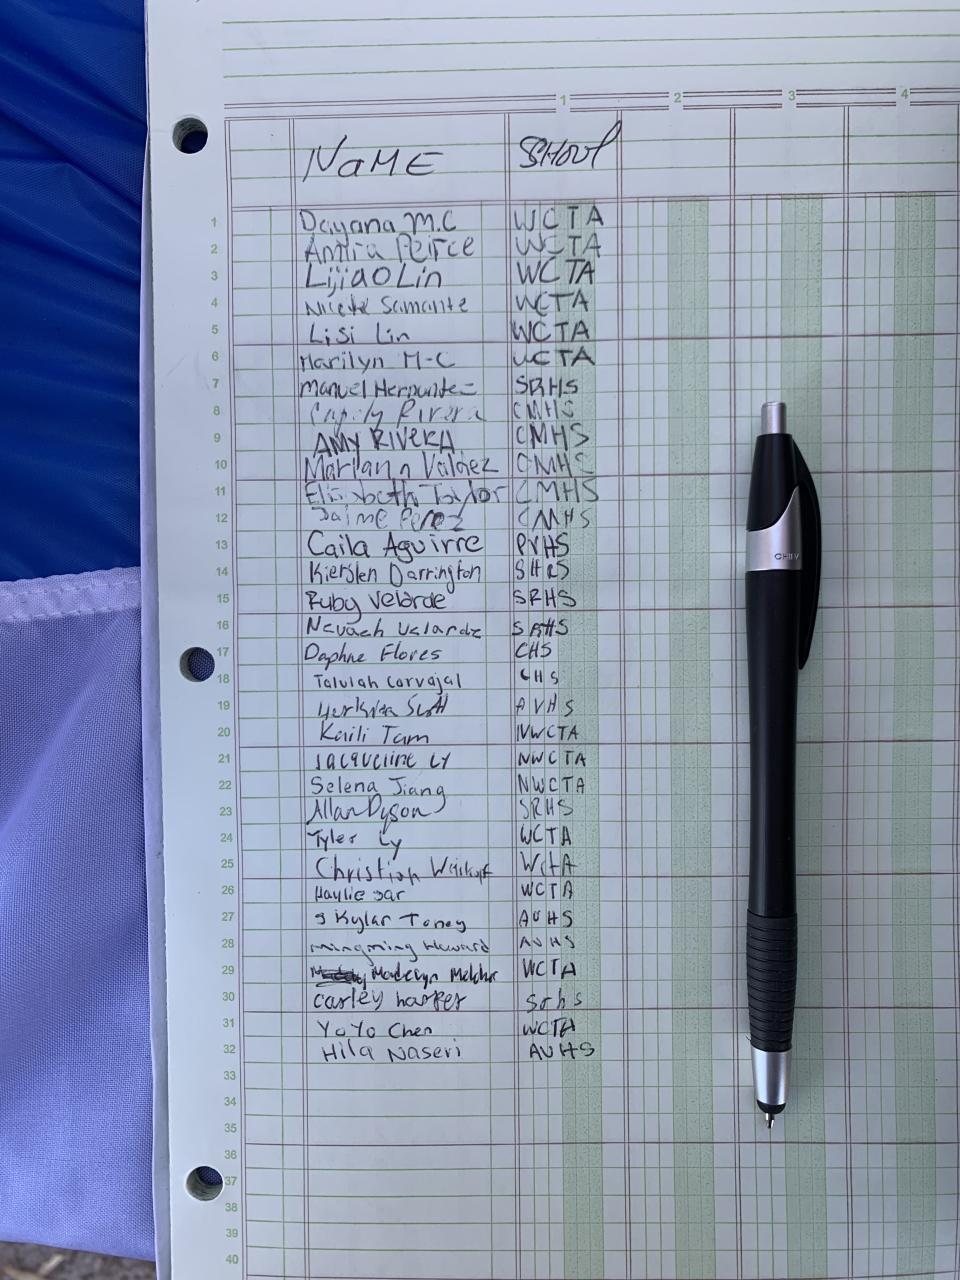 1 2 3 4
NaME SHOOl
1 Dayana M.C WCTA
2 Amira Peirce WCTA
3 Lijiao Lin WCTA
4 Samonte WCTA
5 Lisi Lin WCTA
6 Marilyn M-C WCTA
7 Manuel Hernandez SRHS
8 Rivera CMHS
9 AMY RIVERA CMHS
10 Mariann Valdez CMHS
11 Elizabeth Taylor CMHS
12 Jaime Perez CMHS
13 Caila Aguirre PVHS
14 Kiersten Darrington SHRS
15 Ruby Velarde SRHS
16 Nevaeh Velarde SRHS
17 Daphne Flores CHS
18 Talulah Carvajal CHS
19 Scott AVHS
20 Kaili Tam NWCTA
21 Jacqueline Ly NWCTA
22 Selena Jiang NWCTA
23 Allan Dyson SRHS
24 Tyler Ly WCTA
25 Christian WCTA
26 Haylie WCTA
27 Skylar Toney AVHS
28 Mingming Howard AVHS
29 Madelyn Melcher WCTA
30 Carley harper Srhs
31 YoYo Chen WCTA
32 Hila Naseri AVHS
33
34
35
36
37
38
39
40